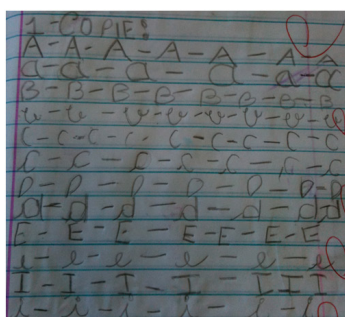 1-COPIE:
A-A-A-A-A-A-A
a-a-a-a-a-a
B-B-B-B-B-B-B-B
b-b-b-b-b-b-b-b
C-C-C-C-C-C-C-C-C
c-c-c-c-c-c-c
D-D-D-D-D-D-D
d-d-d-d-d-d-d
E-E-E-E-E-E-E
e-e-e-e-e-e
I-I-I-I-I-I-I
i-i-i-i-i-i